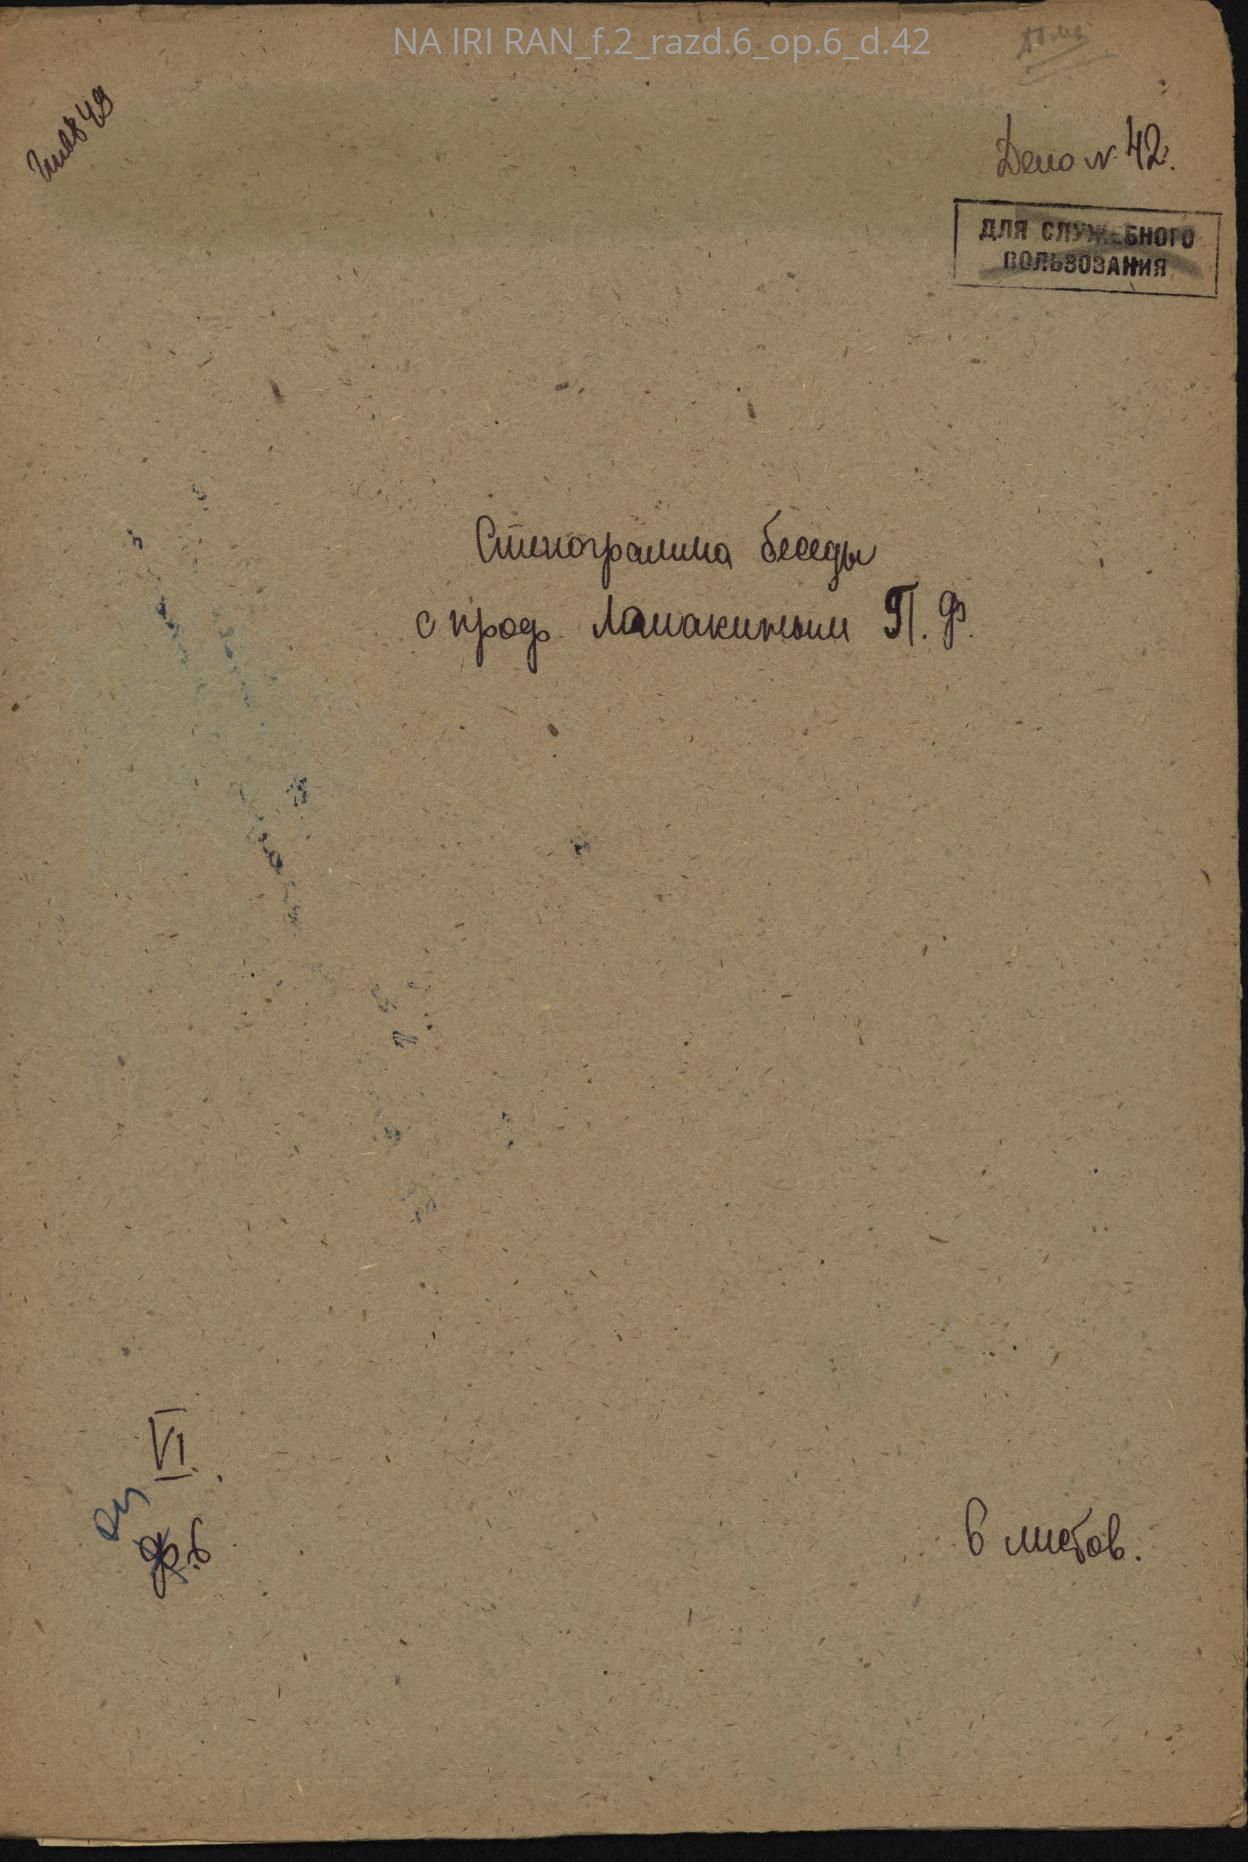 NA IRI RAN_f.2_razd.6_op.6_d.42
Дело N 42.
ДЛЯ СЛУЖЕБНОГО
ПОЛЬЗОВАНИЯ
Стенограмма беседы
с проф. Ломакиным П. Ф.
VI.
6 листов.